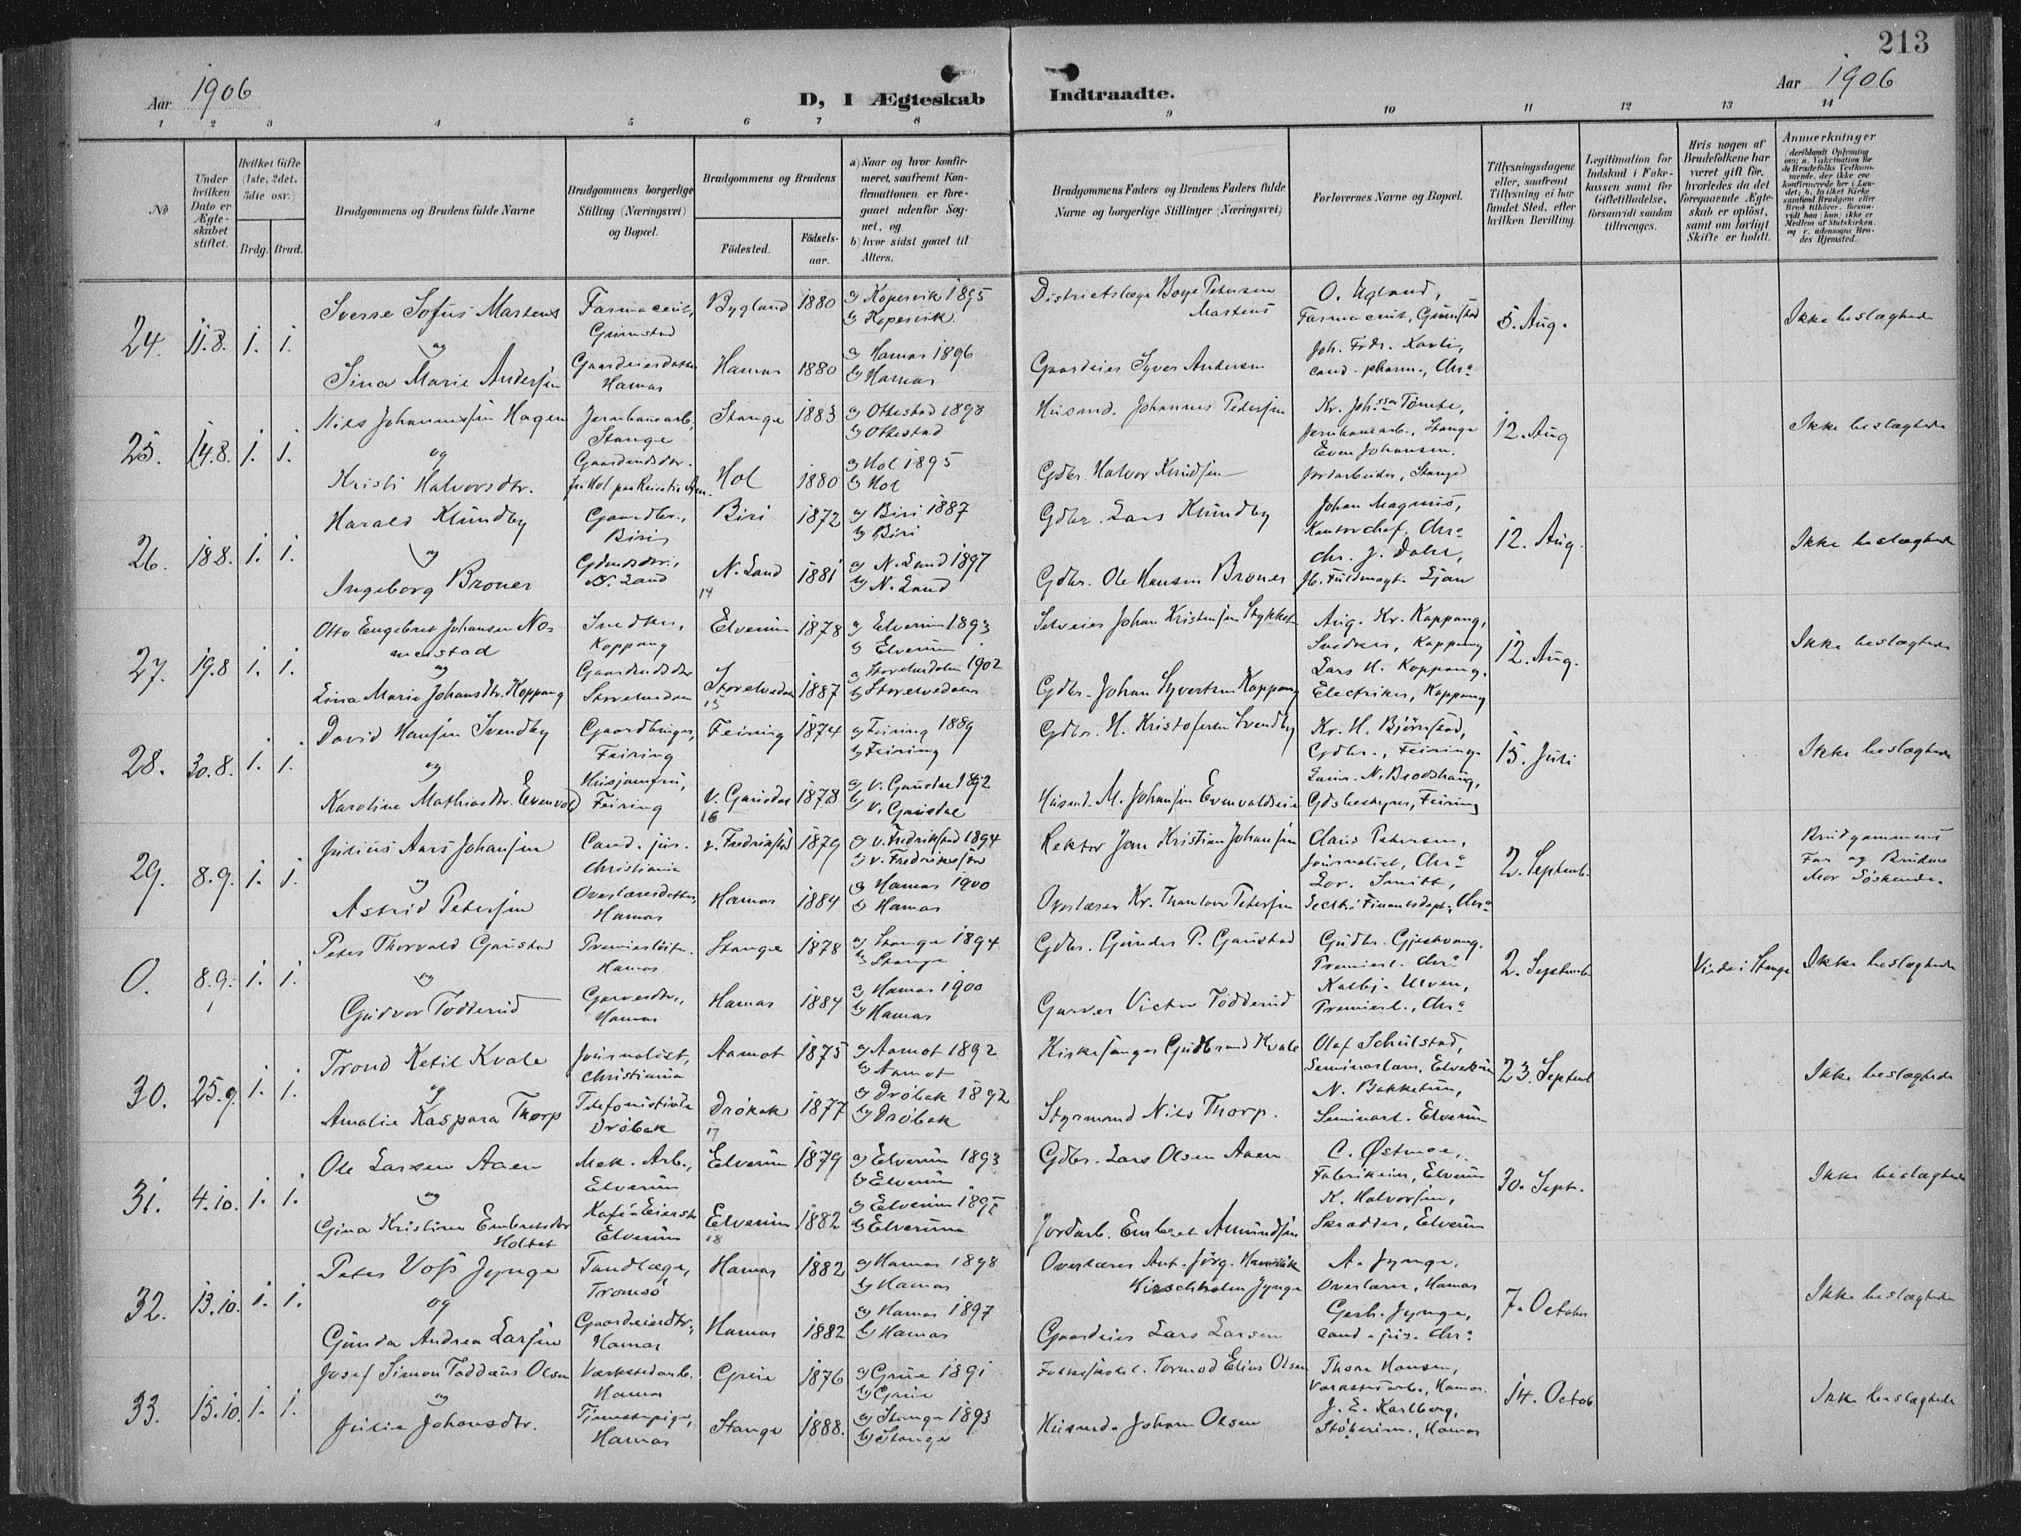 213
Aar 1906
D, I Ægteskab
Indtraadte.
Aar 1906
1 2 3 4 5 6 7 8 9 10 11 12 13 14
No
Under hvilken Dato er Ægteskabet stiftet.
Hvilket Gifte (1ste, 2det, 3die osv.)
Brdg. Brud.
Brudgommens og Brudens fulde Navne
Brudgommens borgerlige Stilling (Næringsvei) og Bopæl.
Brudgommens og Brudens
Fødested. Fødselsaar.
a) Naar og hvor konfirmeret, saafremt Konfirmationen er foregaaet udenfor Sognet, og
b) hvor sidst gaaet til Alters.
Brudgommens Faders og Brudens Faders fulde Navne og borgerlige Stillinger (Næringsvei)
Forlovernes Navne og Bopæl.
Tillysningsdagene eller, saafremt Tillysning ei har fundet Sted, efter hvilken Bevilling.
Legitimation for Indskud i Enkekassen samt for Giftetilladelse, forsaavidt saadan tiltrænges.
Hvis nogen af Brudefolkene har været gift før, hvorledes da det foregaaende Ægteskab er opløst, samt om lovligt Skifte er holdt.
Anmærkninger
24. 11.8. 1. 1.
Sverre Sofus Martens
og
Sina Marie Andersen
Farmaceut, Grimstad
Gaardeierdatter Hamar
Bygland 1880
Hamar 1880
a) Kopervik 1895
b) Kopervik.
a) Hamar 1896
b) Hamar
Districtslæge Boye Petersen Martens
Gaardeier Syver Andersen
O. Ugland,
Farmaceut, Grimstad
cand. pharm., Chra
5. Aug.
Ikke beslægtede
25. 14.8. 1. 1.
Nils Johannessen Hagen
og
Kristi Halvorsdtr.
Jernbanearb. Stange
Stange 1883
Hol 1880
a) Ottestad 1898
b) Ottestad
a) Hol 1895
b) Hol
Husmd. Johannes Pedersen
Gdbr. Halvor Knudsen
Jernbanearb., Stange
Even Johansen.
Jordarbeider, Stange
12. Aug
Ikke beslægtede
26. 18.8. 1. 1.
Harald Klundby
og
Ingeborg Broner
Gaardbr., Biri
N. Land
Biri 1872
N. Land 1881
14
a) Biri 1887
b) Biri
a) N. Land 1897
b) N. Land
Gdbr. Lars Klundby
Gdbr. Ole Hansen Broner
Johan Magnus,
Kontorchef, Chra
12. Aug.
Ikke beslægtede
27. 19.8 1. 1.
Otto Engebret Johansen No-
menstad
og
Lina Marie Johansdtr. Koppang
Snedker, Koppang
Elverum 1878
Storelvedalen 1887
15
a) Elverum 1893
b) Elverum
a) Storelvedalen 1902
b) Storelvedalen
Selveier Johan Kristensen Stykket
Gdbr. Johan Syversen Koppang
Aug. Kr. Koppang,
Snedker, Koppang
Lars H. Koppang.
Electriker, Koppang
12. Aug.
Ikke beslægtede
28. 30.8. 1. 1.
David Hansen Svendby
og
Karoline Mathiasdtr. Evenvold
Gaardbruger, Feiring
Husjomfru, Feiring
Feiring 1874
V. Gausdal 1878
16
a) Feiring 1889
b) Feiring
a) V. Gausdal 1892
b) V. Gausdal
Gdbr. H. Kristofersen Svendby
Husmd. M. Johansen Evenvoldseie
Kr. H. Bjørnstad,
Gdbr., Feiring.
Gdsbestyrer, Feiring
15. Juli
Ikke beslægtede
29. 8.9. 1. 1.
Julius Aars Johansen
og
Astrid Petersen
Cand. jur. Christiania
Overlærerdatter, Hamar
v. Fredrikstad 1879
Hamar 1884
a) V. Fredrikstad 1894
b) V. Fredrikstad
a) Hamar 1900
b) Hamar
Rektor Jan Kristian Johansen
Overlærer Kr. Thanlow Petersen
Claus Petersen,
Journalist, Chra
Lor. Smitt,
Secrt. i Finansdept., Chra
2. Septemb.
Brudgommens
Far og Brudens
Mor Søskende.
O. 8.9. 1. 1.
Peter Thorvald Gaustad
og
Gudvor Tødderud
Premierløitn. Hamar
Garverdtr., Hamar
Stange 1878
Hamar 1884
a) Stange 1894
b) Stange
a) Hamar 1900
b) Hamar
Gdbr. Gunder P. Gaustad
Garver Victor Tødderud
Gudbr. Gjestvang.
Premierl. Chra
Kolbj. Ulven,
Premierl., Chra
2. Septemb
Viede i Stange
Ikke beslægtede
30. 25.9. 1. 1.
Trond Ketil Kvale
og
Amalie Kaspara Thorp
Journalist, Christiania
Telefonistinde Drøbak
Aamot 1875
Drøbak 1877
17
a) Aamot 1892
b) Aamot
a) Drøbak 1892
b) Drøbak
Kirkesanger Gudbrand Kvale
Styrmand Nils Thorp.
Olaf Schulstad,
Seminarlærer, Elverum
N. Bakketun,
Seminarl. Elverum
23. Septemb
Ikke beslægtede
31. 4.10. 1. 1.
Ole Larsen Aaen
og
Gina Kristine Embretsdtr
Holtet
Mek. Arb., Elverum
Elverum
Elverum 1879
Elverum 1882
18
a) Elverum 1893
b) Elverum
b) Elverum
Gdbr. Lars Olsen Aaen
Jordarb. Embret Amundsen
C. Østmoe,
Fabrikeier, Elverum
K. Halvorsen,
Skrædder, Elverum
30. Sept.
Ikke beslægtede
32. 13.10. 1. 1.
Peter Voss Jynge
og
Gunda Andrea Larsen
Tandlæge, Tromsø
Gaardeierdtr., Hamar
Hamar 1882
Hamar 1882
a) Hamar 1898
b) Hamar
a) Hamar 1897
b) Hamar
Gaardeier Lars Larsen
A. Jynge,
Overlærer, Hamar
Gerh. Jynge,
cand. jur. Chra
7. October
Ikke beslægtede
33. 15.10. 1. 1.
Josef Simon Taddæus Olsen
og
Julie Johansdtr.
Værkstedarb. Hamar
Tjenestepige, Hamar
Grue 1876
Stange 1888.
a) Grue 1891
b) Grue
a) Stange 1893
b) Stange
Tormod Elias Olsen
Husmd. Johan Olsen
Thore Hansen,
Værkstedarb., Hamar.
J. E. Karlberg,
Hamar
14. Octob.
Ikke beslægtede